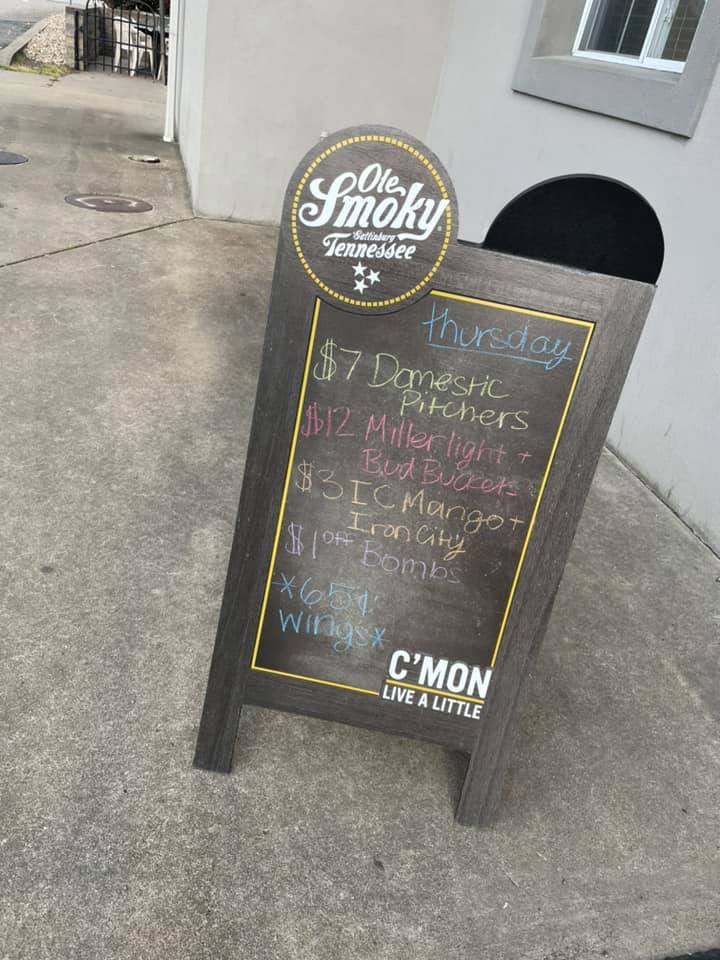 Ole
Smoky
Gatlinburg
Tennessee
thursday
$7 Domestic
Pitchers
$12 Miller light +
Bud Buckets
$3 IC Mango +
Iron City
$1 off Bombs
*65¢
wings*
C'MON
LIVE A LITTLE